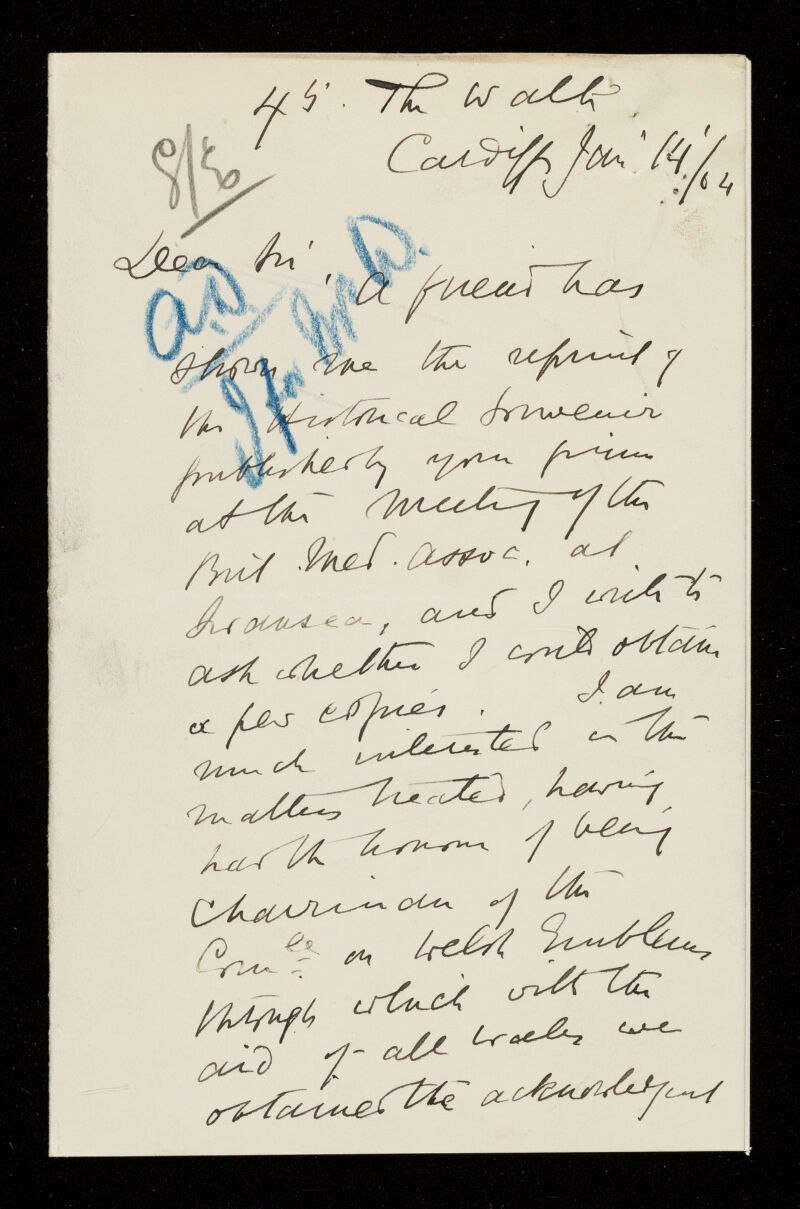 45. The Walk
Cardiff, Jan. 14/04
8/30
Dear Sir, A friend has
A.D.
I for
shown me the reprint of
the Historical Souvenir
published by your firm
at the Meeting of the
Brit. Med. Assoc. at
Swansea, and I write to
ask whether I could obtain
a few copies. I am
much interested in the
matters treated, having
had the honour of being
Chairman of the
Comee on Welsh Emblems
through which with the
aid of all Wales we
obtained the acknowledgment